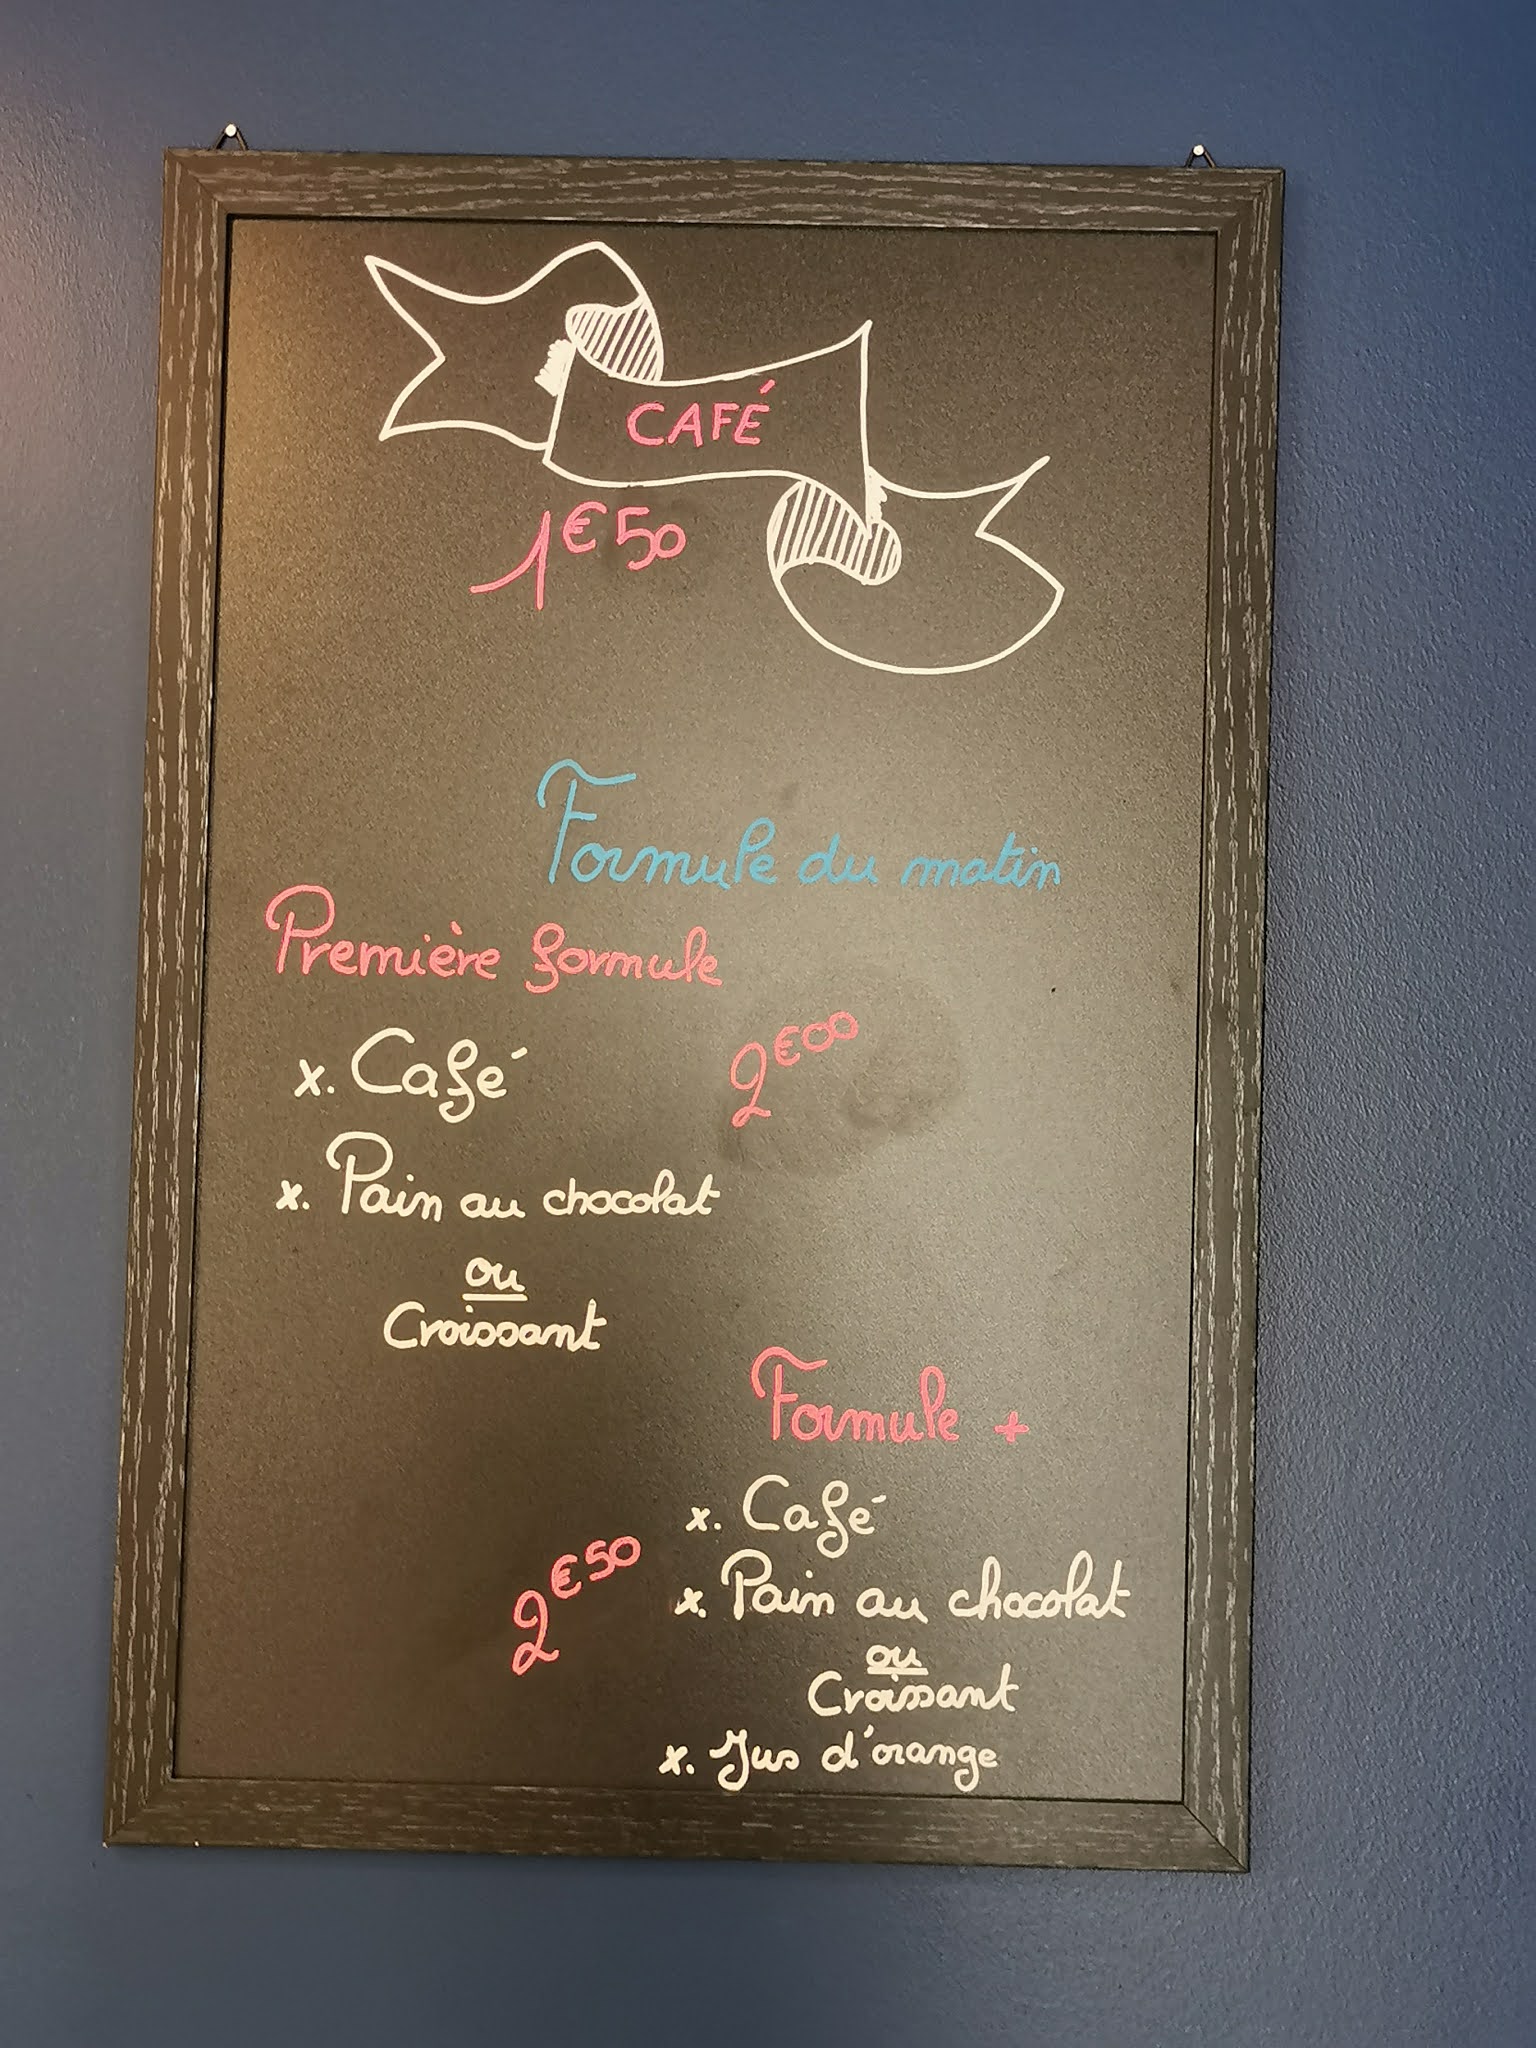 CAFÉ
1€50
Formule du matin
Première formule
x. Café
2€00
x. Pain au chocolat
ou
Croissant
Formule +
x. Café
2€50
x. Pain au chocolat
ou
Croissant
x. Jus d'orange